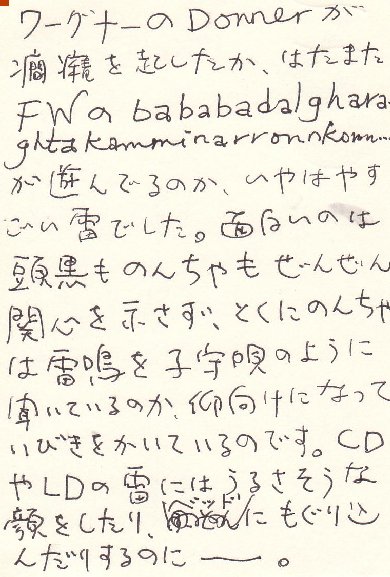 ワーグナーのDonnerが
癇癪を起したか、はたまた
FWのbababadalghara
ghtakamminarronnkonn...
が遊んでるのか、いやはやす
ごい雷でした。面白いのは
頭黒ものんちゃもぜんぜん
関心を示さず、とくにのんちゃ
は雷鳴を子守唄のように
聞いているのか、仰向けになって
いびきをかいているのです。CD
やLDの雷にはうるさそうな
顔をしたり、ベッドにもぐり込
んだりするのに——。